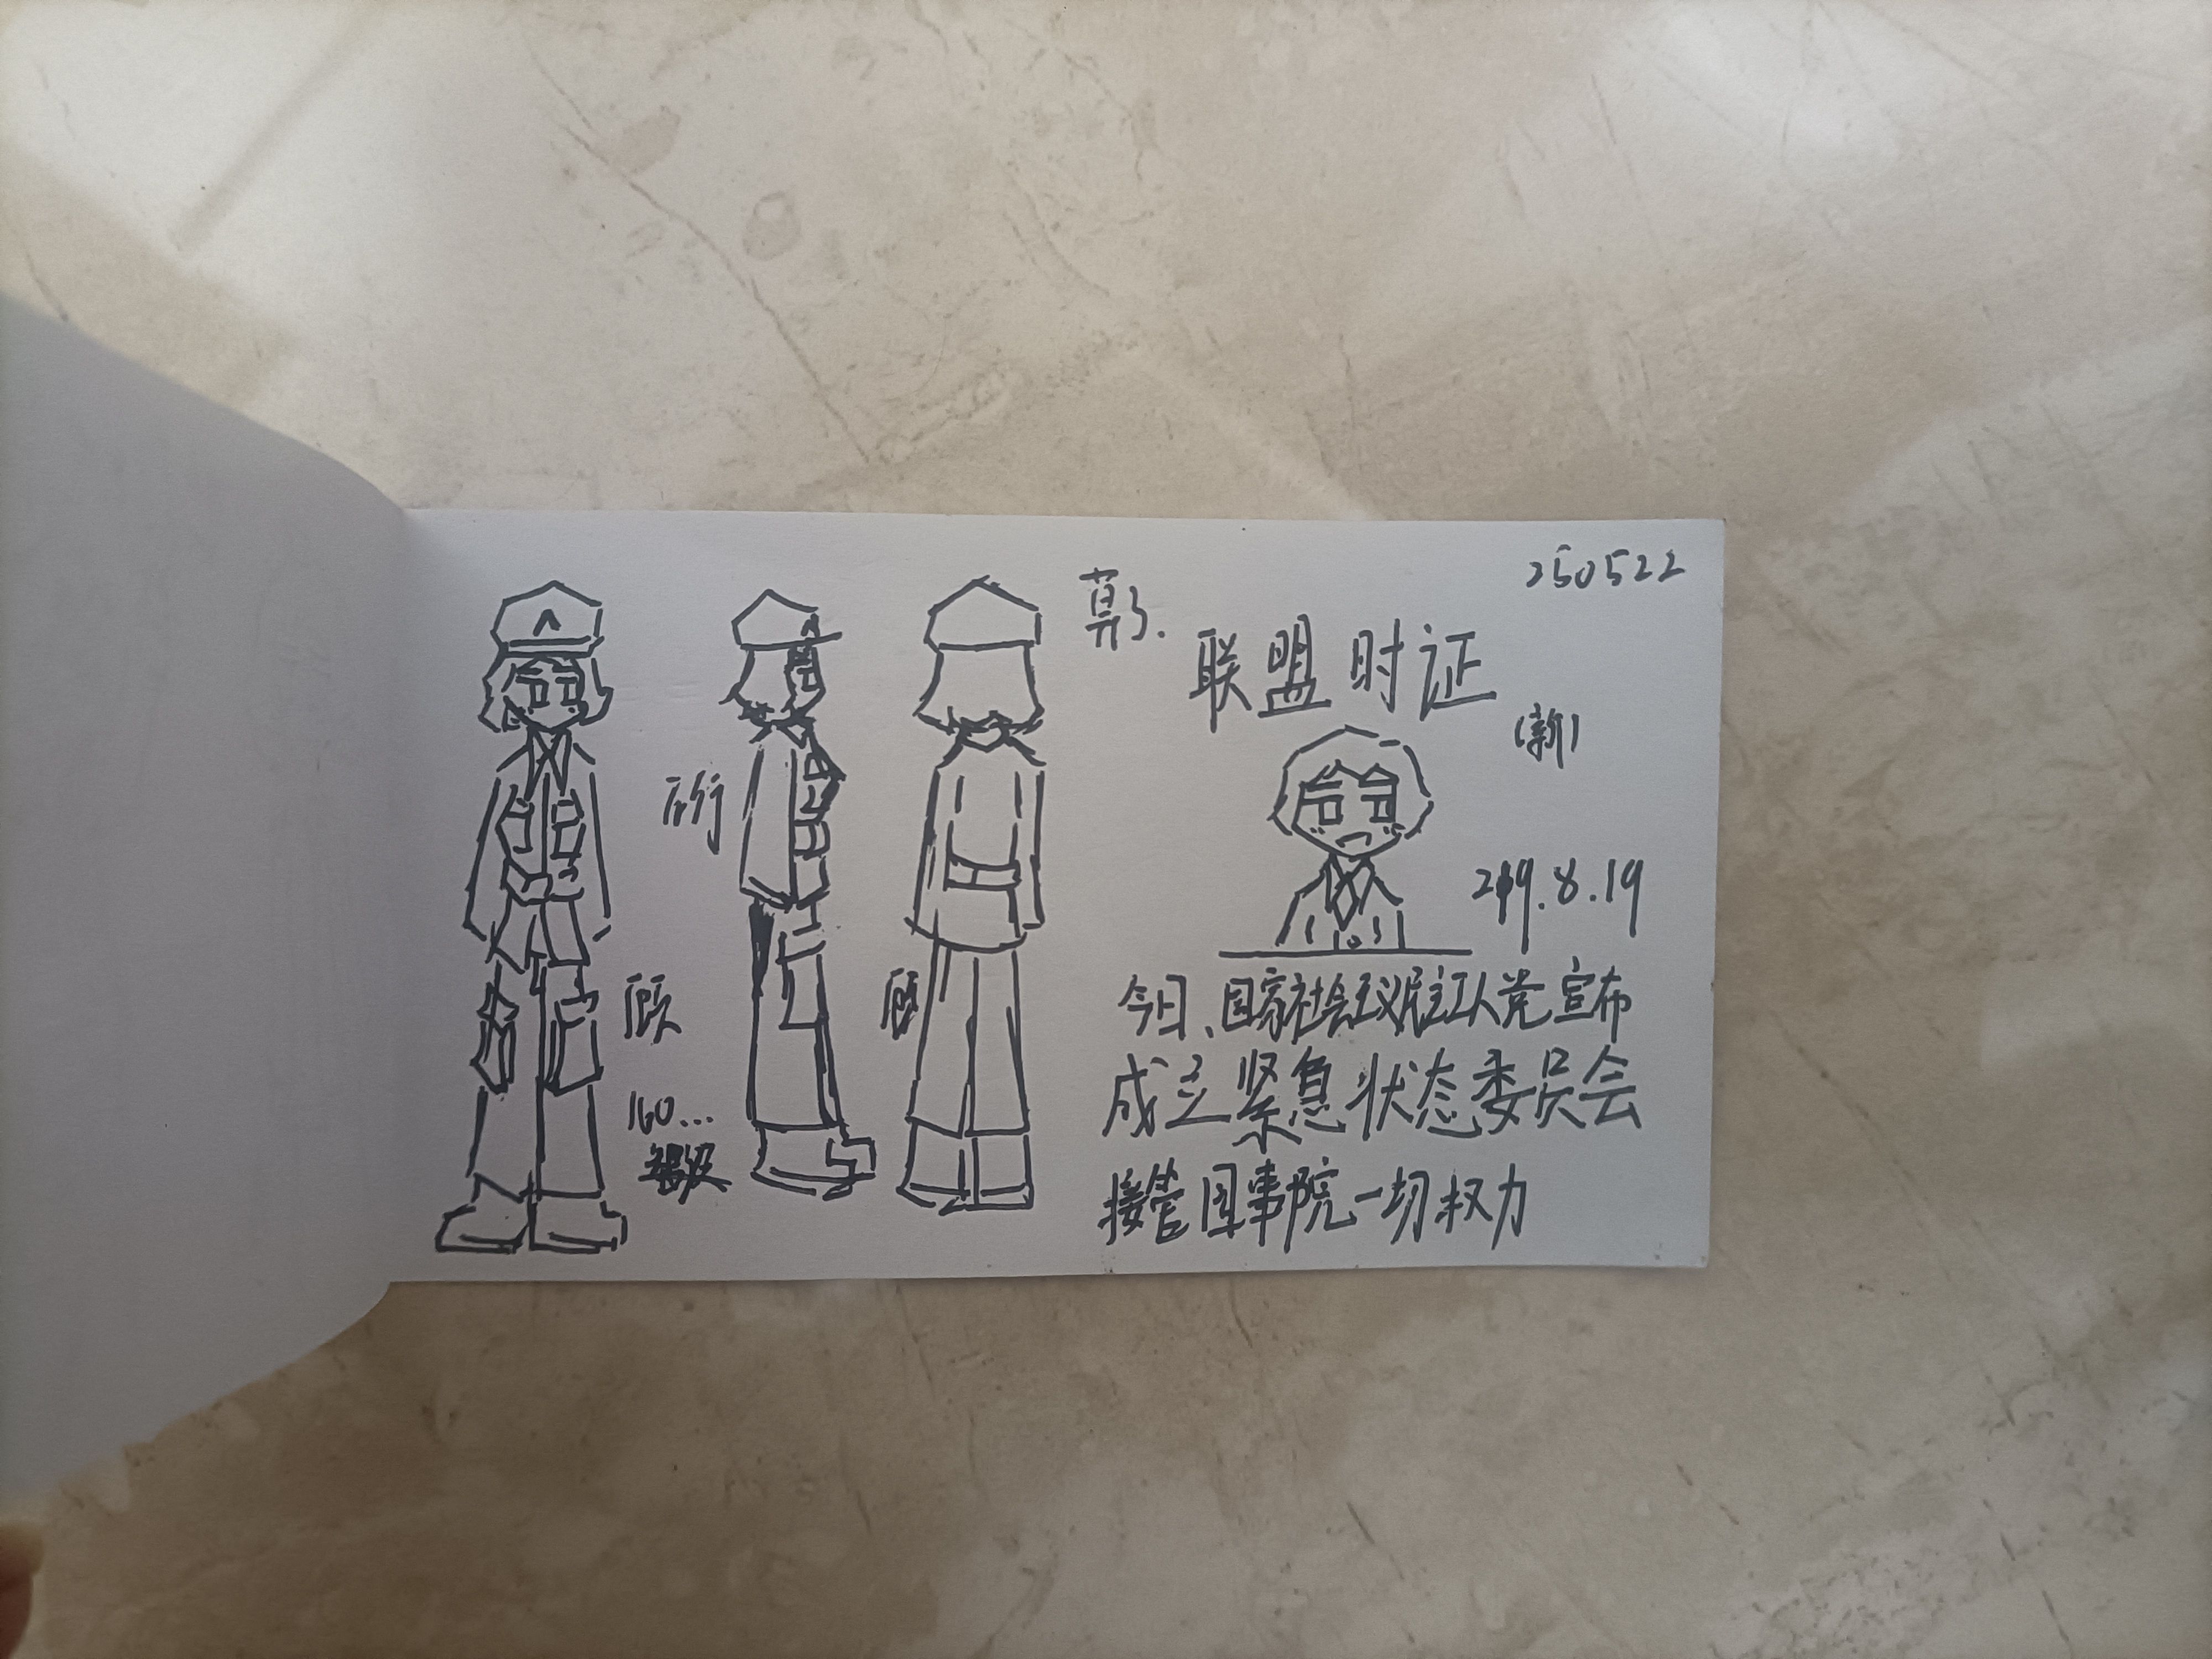 250522
联盟时证
(新)
顾
顾
160...
219.8.19
今日、国家社会主义民主工人党宣布
成立紧急状态委员会
接管国事院一切权力